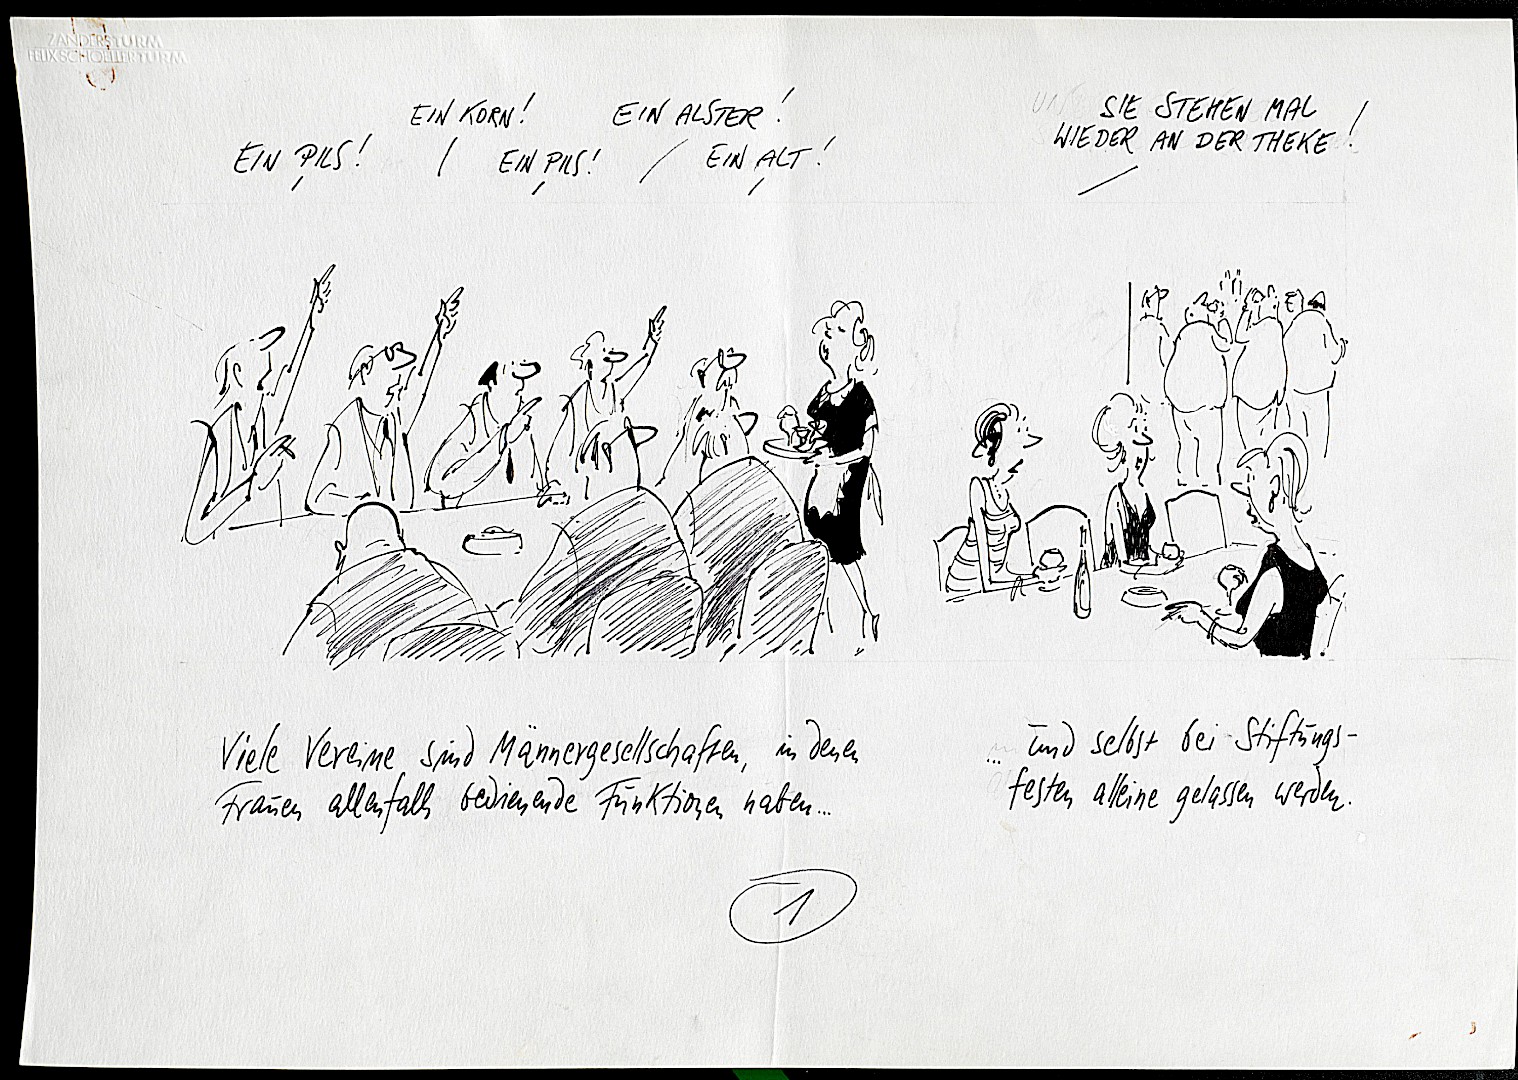 ZANDERSTURM
FELIX SCHOELLERTURM
EIN KORN!
EIN ALSTER!
EIN PILS!
EIN PILS!
EIN ALT!
SIE STEHEN MAL
WIEDER AN DER THEKE!
Viele Vereine sind Männergesellschaften, in denen
Frauen allenfalls bedienende Funktionen haben...
... und selbst bei Stiftungs-
festen alleine gelassen werden.
1